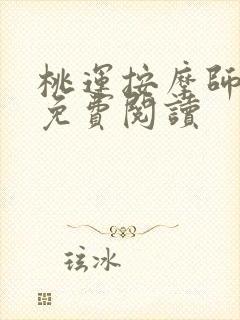 桃運按摩師
免費閱讀
玹冰